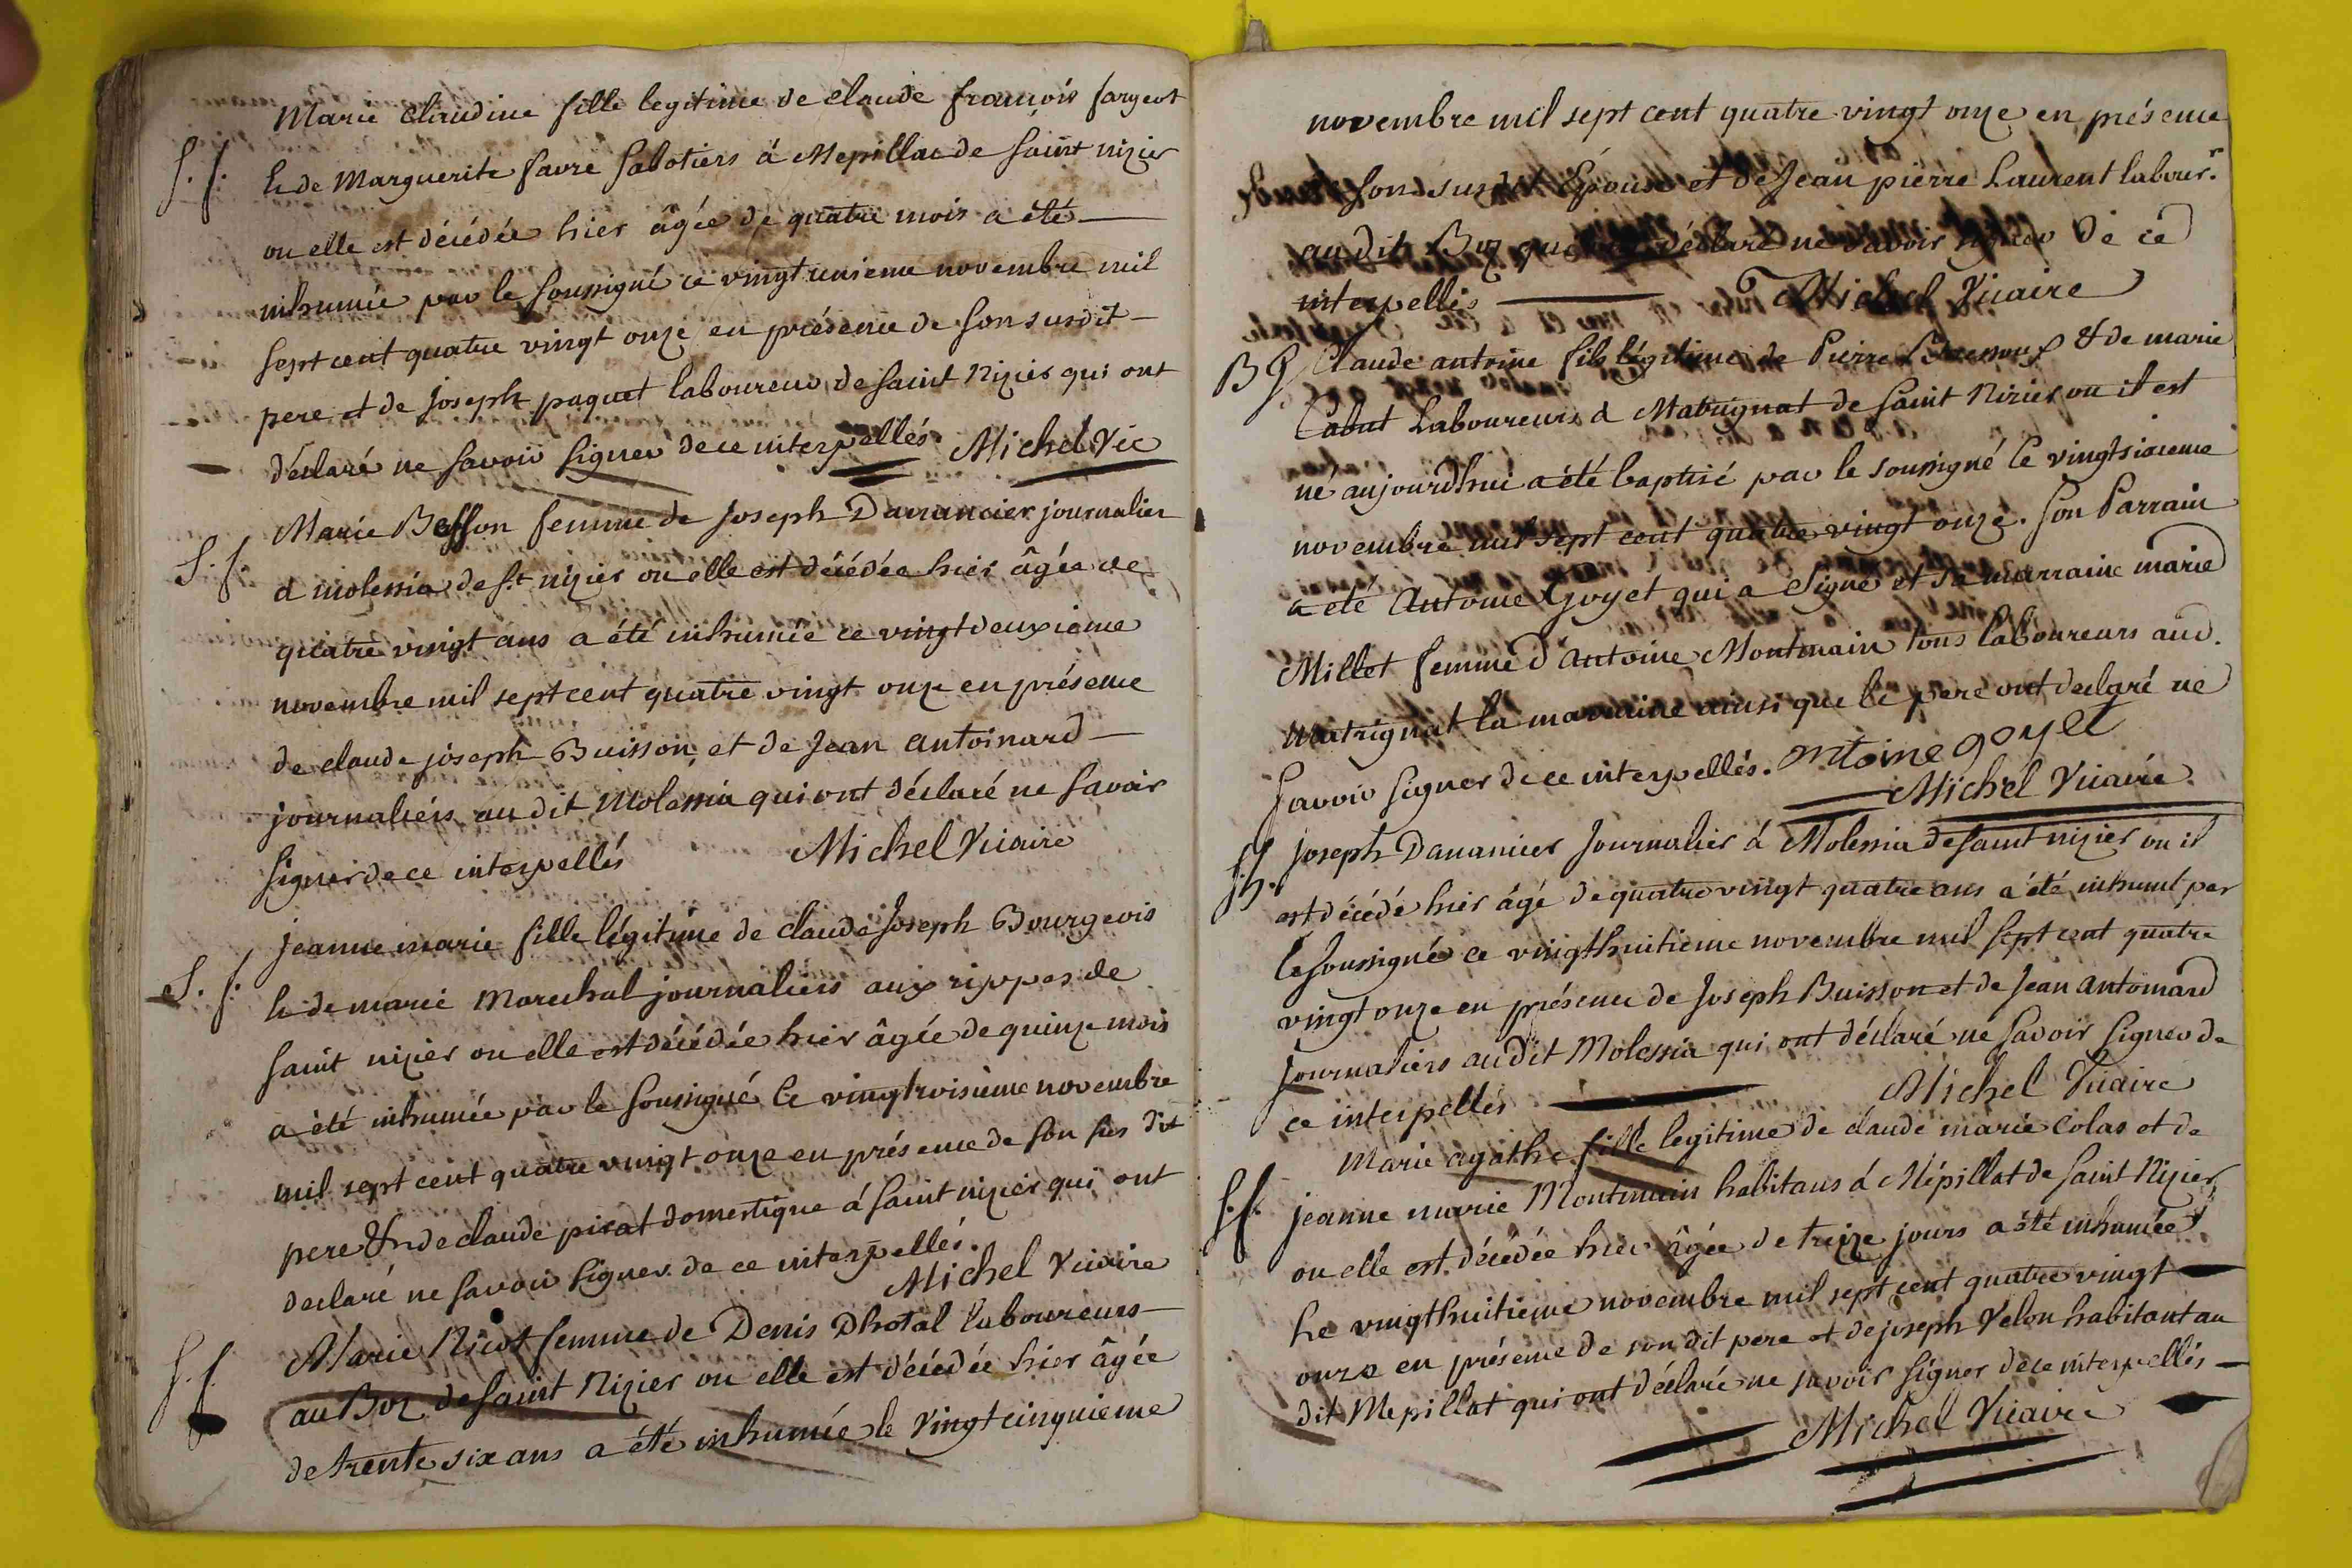 Marie Claudine fille legitime de claude francois fargeot
S. f. & de Marguerite favre Sabotiers à Mepillat de saint nizier
ou elle est décédée hier âgée de quatre mois a été
inhumée par le soussigné ce vingt unieme novembre mil
sept cent quatre vingt onze en présence de son susdit
pere et de joseph paquet laboureur de saint Nizier qui ont
déclaré ne savoir signer de ce interpellés. Michel Vic
Marie Basson femme de Joseph Davancier journalier
S. f. a molessia de st nizier ou elle est décédée hier âgée de
quatre vingt ans a été inhumée ce vingt deuxieme
novembre mil sept cent quatre vingt onze en présence
de claude joseph Buisson et de Jean antoinard
journaliers au dit Molessia qui ont déclaré ne savoir
signer de ce interpellés Michel Vicaire
jeanne marie fille légitime de claude Joseph Bourgeois
S. f. & de marie Marechal journaliers aux rippes de
saint nizier ou elle est décédée hier âgée de quinze mois
a été inhumée par le soussigné le vingtroisieme novembre
mil sept cent quatre vingt onze en présence de son sus dit
pere & de claude pirat domestique à saint nizier qui ont
declaré ne savoir signer de ce interpellés.
Michel Vicaire
S. f. Marie Nicot femme de Denis Dhotal laboureurs
au Boz de saint Nizier ou elle est décédée hier âgée
de trente six ans a été inhumée le vingt cinquieme
novembre mil sept cent quatre vingt onze en présence
son susdit Épouse et de Jean pierre Laurent labour.r
au dit Boz qui ont déclaré ne savoir signer de ce
interpellés Michel Vicaire
B G Claude antoine fils légitime de Pierre & de marie
Cabut Laboureurs a Matrignat de saint Nizier ou il est
né aujourdhui a été baptisé par le soussigné le vingtsixieme
novembre mil sept cent quatre vingt onze. son Parrain
a été Antoine Goyet qui a signé et sa marraine marie
Millet femme d'antoine Montmain tous laboureurs aud.
matrignat la marraine ainsi que le pere ont declaré ne
savoir signer de ce interpellés. antoine goyet
Michel Vicaire
S. h. Joseph Davancier Journalier à Molessia de saint nizier ou il
est décédé hier âgé de quatre vingt quatre ans a été inhumé par
le soussigné ce vingthuitieme novembre mil sept cent quatre
vingt onze en présence de Joseph Buisson et de Jean antoinard
journaliers au dit Molessia qui ont déclaré ne savoir signer de
ce interpellés Michel Vicaire
Marie agathe fille legitime de claude marie Colas et de
S. f. jeanne marie Montmain habitans à Mépillat de saint Nizier
ou elle est décédée hier âgée de treize jours a été inhumée
le vingthuitieme novembre mil sept cent quatre vingt
onze en présence de son dit pere et de joseph Velon habitant au
dit Mepillat qui ont déclaré ne savoir signer de ce interpellés
Michel Vicaire